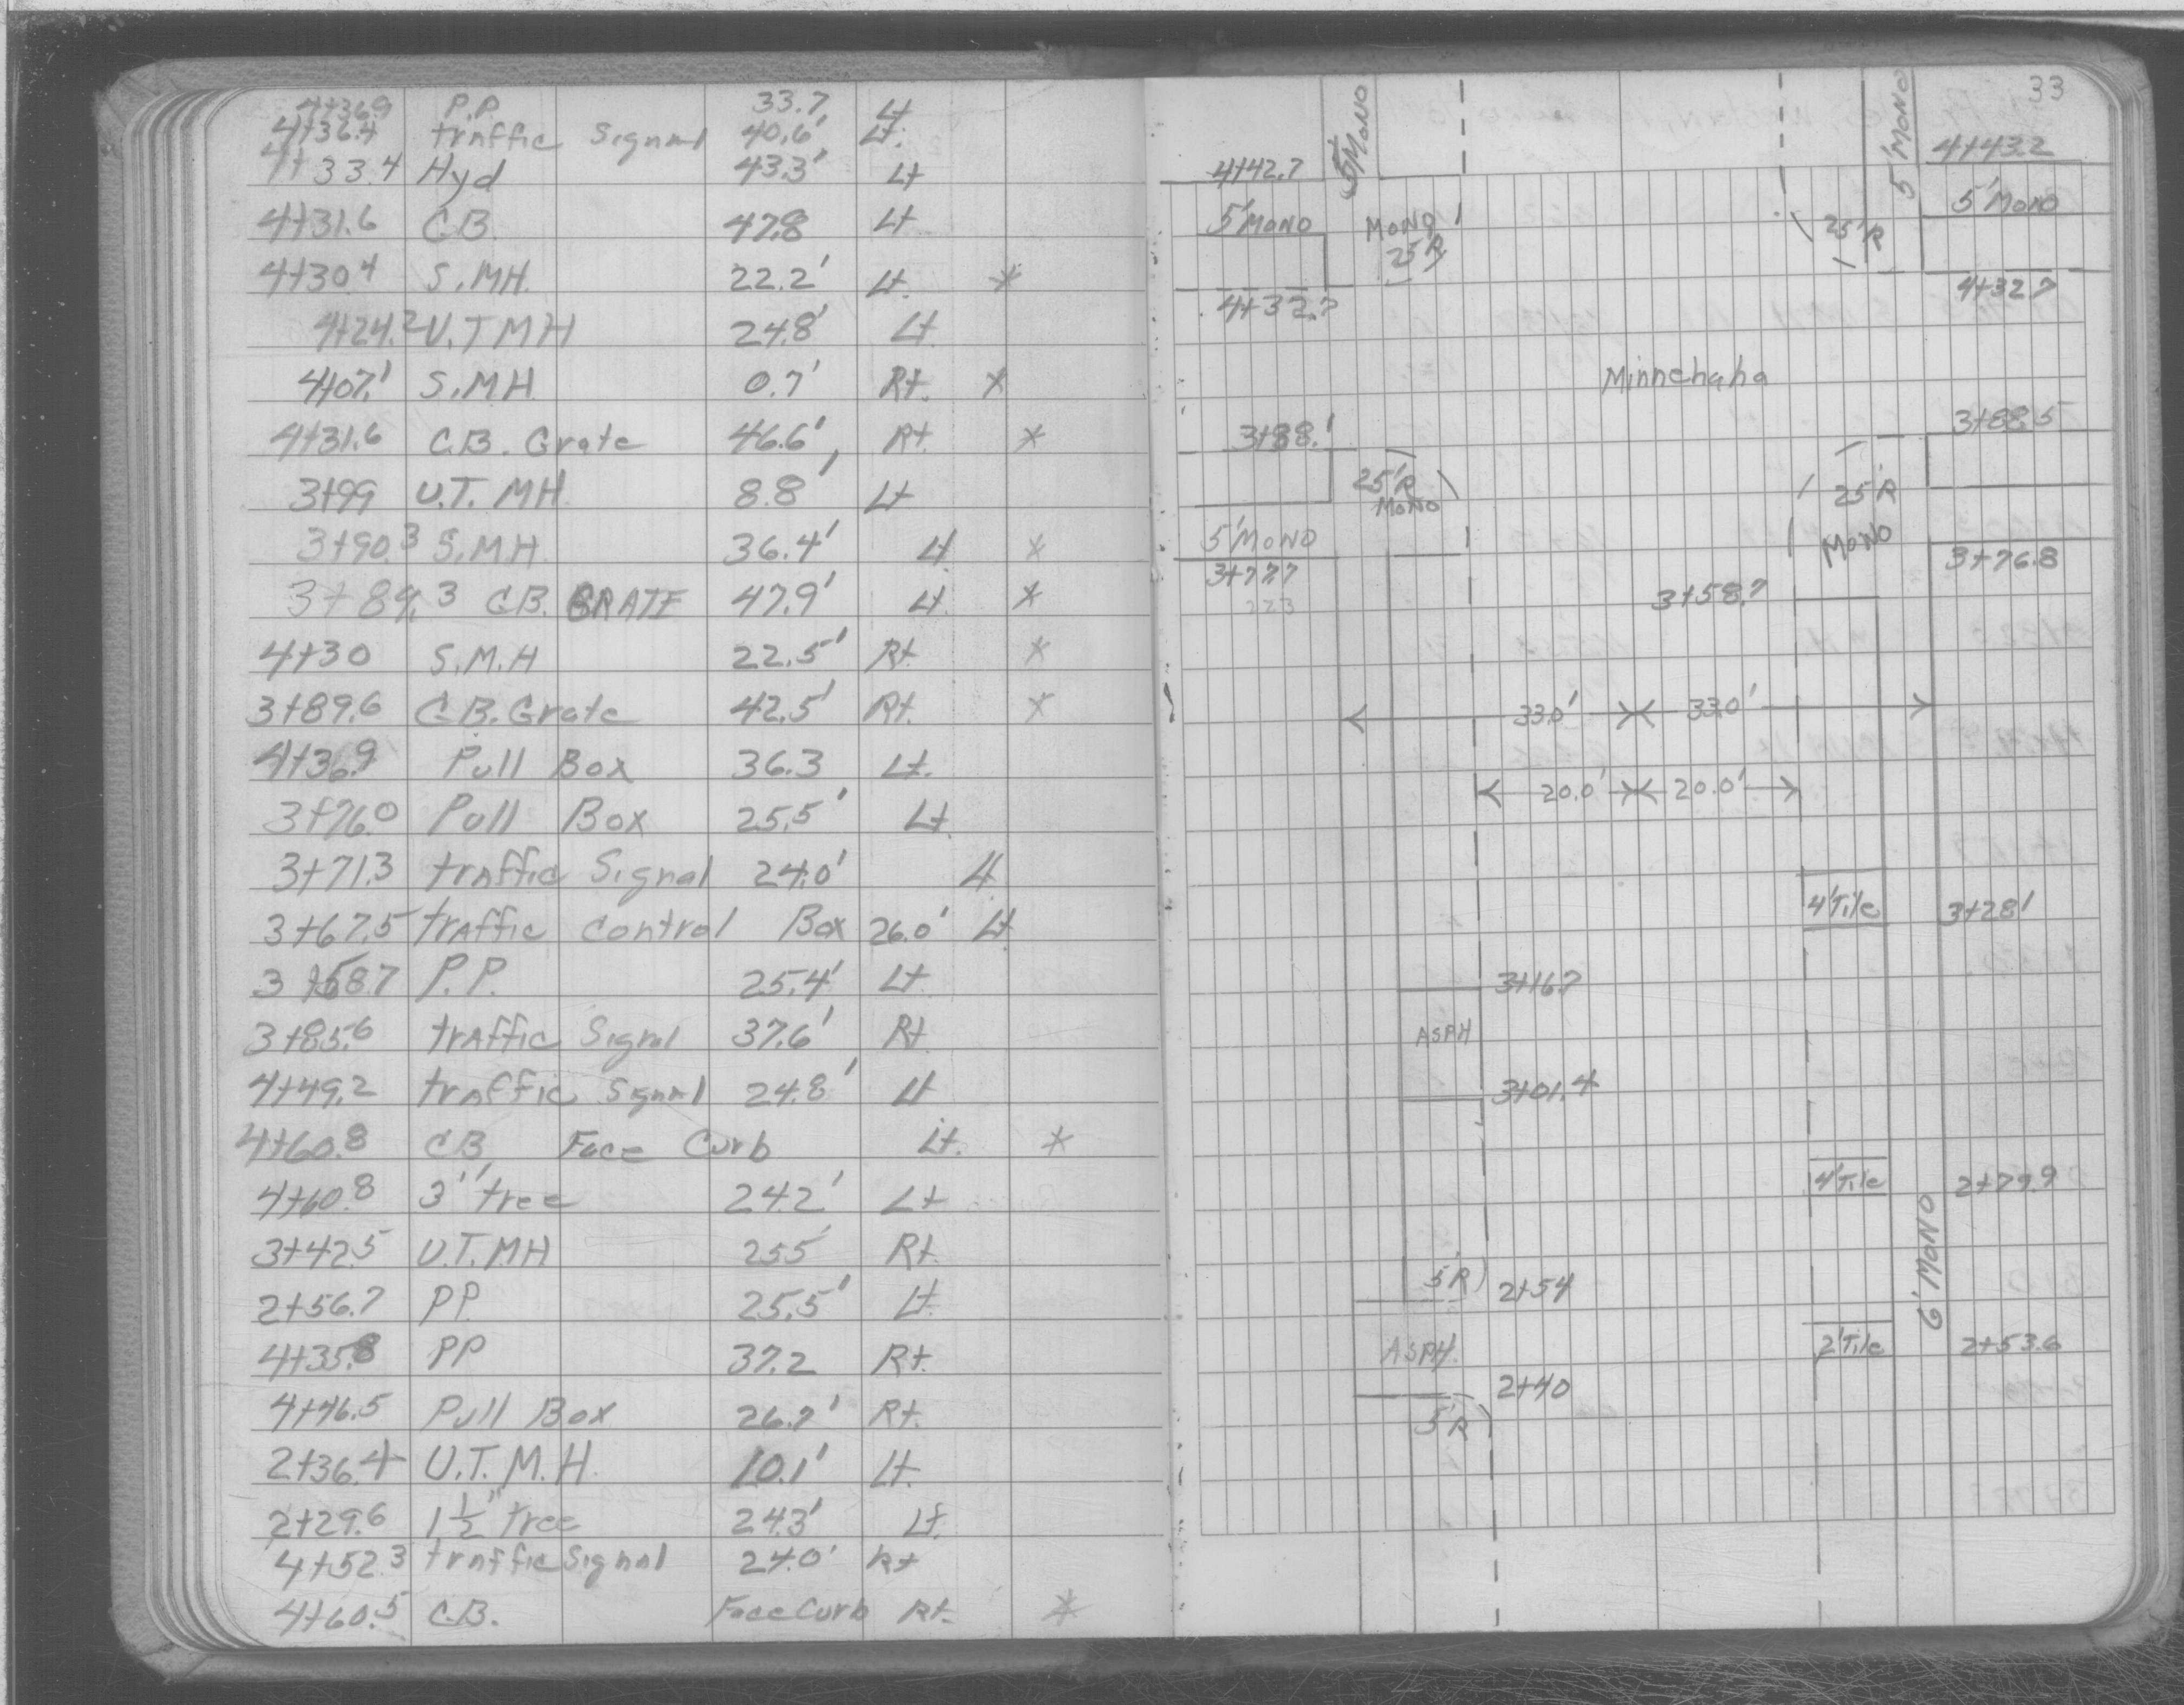 4+36.9 P.P. 33.7, Lt
4+36.4 traffic Signal 40.6' Lt.
4+33.4 Hyd 43.3' Lt
4+31.6 C.B. 47.8 Lt
4+30.4 S.MH. 22.2' Lt. *
4+24.2 U.T MH 24.8' Lt
4+07.1 S.MH. 0.7' Rt. *
4+31.6 C.B. Grate 46.6' Rt. *
3+99 U.T. MH 8.8' Lt
3+90.3 S.MH. 36.4' Lt *
3+89.3 C.B. GRATE 47.9' Lt. *
4+30 S.M.H 22.5' Rt. *
3+89.6 C.B. Grate 42.5' Rt. *
4+36.9 Pull Box 36.3 Lt.
3+76.0 Pull Box 25.5' Lt.
3+71.3 traffic Signal 24.0' Lt
3+67.5 traffic control Box 26.0' Lt
3+58.7 P.P. 25.4' Lt
3+85.6 traffic Signal 37.6' Rt
4+49.2 traffic Signal 24.8' Lt
4+60.8 C.B. Face Curb Lt. *
4+60.8 3" tree 24.2' Lt
3+42.5 U.T.MH 25.5 Rt.
2+56.7 PP. 25.5' Lt.
4+35.8 PP 37.2 Rt.
4+46.5 Pull Box 26.7' Rt.
2+36.4 U.T. M.H. 10.1' Lt.
2+29.6 1 1/2" tree 24.3' Lt.
4+52.3 traffic Signal 24.0' Rt
4+60.5 C.B. Face Curb Rt. *
33
5' MONO 5' MONO
4+42.7 4+43.2
5' MONO MONO 25'R 25'R 5' MONO
4+32.7 4+32.7
Minnehaha
3+88.1 3+88.5
25'R MONO 25'R
5' MONO MONO
3+77.7 3+76.8
223
3+58.7
33.0' 33.0'
20.0' 20.0'
4' Tile 3+28.1
3+16.7
ASPH
3+01.4
4' Tile 2+79.9
6' MONO
5'R 2+54
ASPH. 2' Tile 2+53.6
2+40
5'R